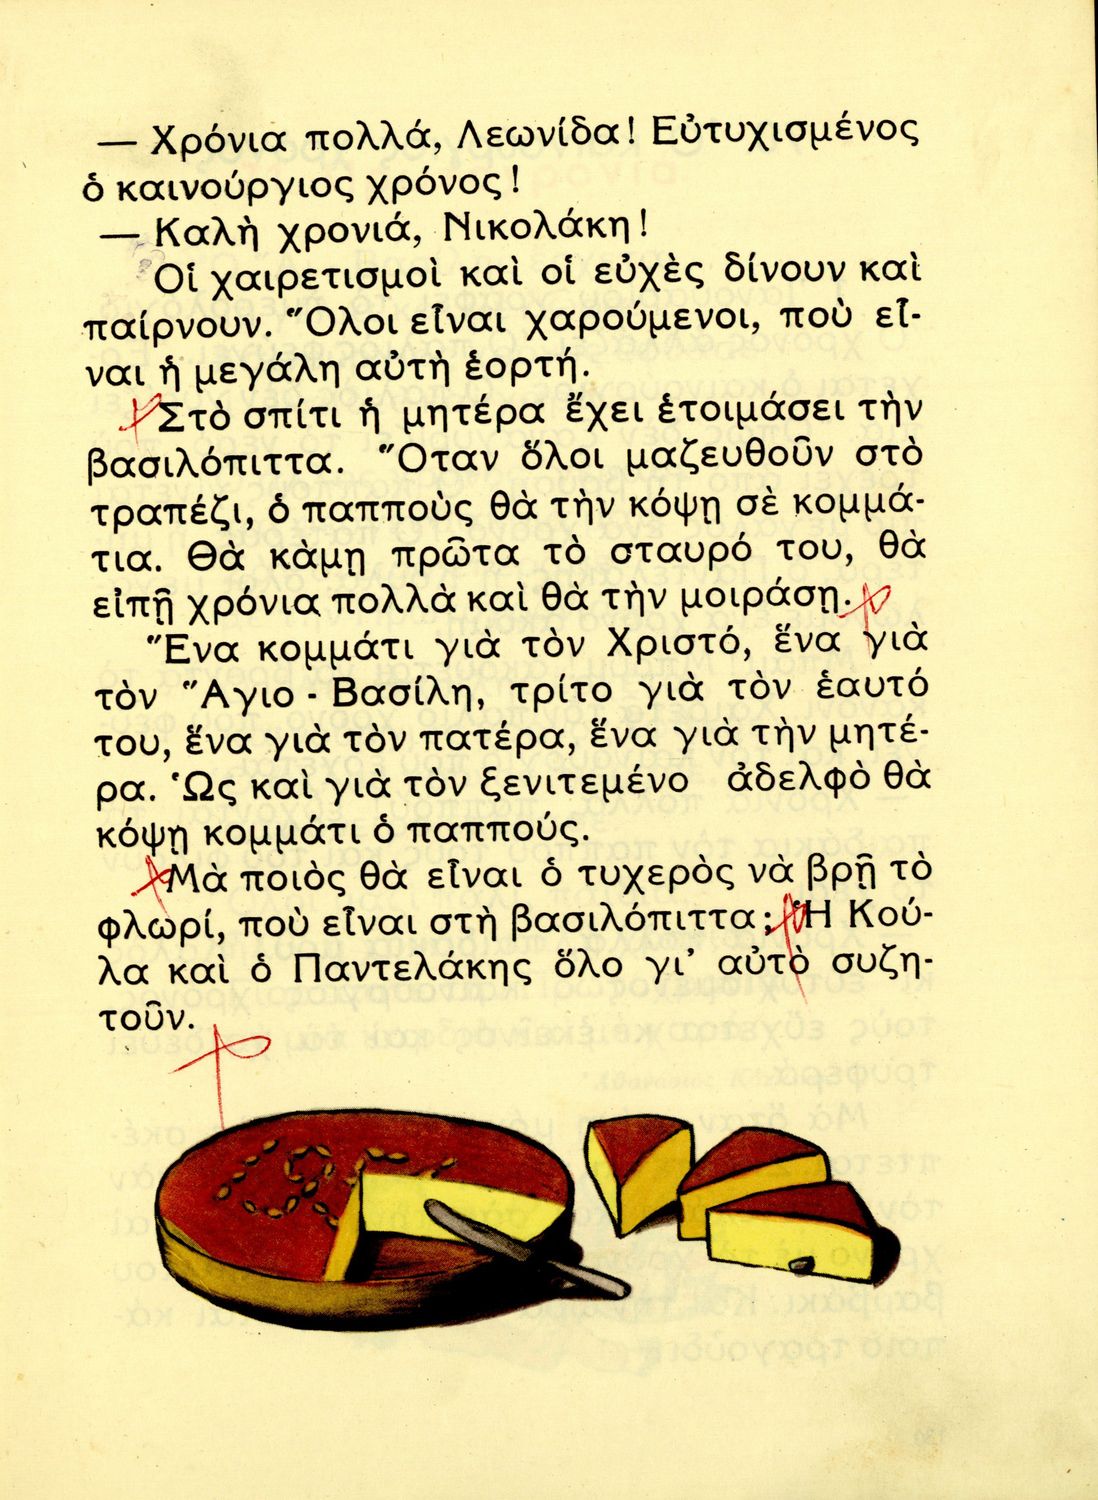 — Χρόνια πολλά, Λεωνίδα! Εὐτυχισμένος
ὁ καινούργιος χρόνος!
— Καλὴ χρονιά, Νικολάκη!
Οἱ χαιρετισμοὶ καὶ οἱ εὐχὲς δίνουν καὶ
παίρνουν. Ὅλοι εἶναι χαρούμενοι, ποὺ εἶ-
ναι ἡ μεγάλη αὐτὴ ἑορτή.
Στὸ σπίτι ἡ μητέρα ἔχει ἑτοιμάσει τὴν
βασιλόπιττα. Ὅταν ὅλοι μαζευθοῦν στὸ
τραπέζι, ὁ παπποὺς θὰ τὴν κόψῃ σὲ κομμά-
τια. Θὰ κάμῃ πρῶτα τὸ σταυρό του, θὰ
εἰπῇ χρόνια πολλὰ καὶ θὰ τὴν μοιράσῃ.
Ἕνα κομμάτι γιὰ τὸν Χριστό, ἕνα γιὰ
τὸν Ἅγιο - Βασίλη, τρίτο γιὰ τὸν ἑαυτό
του, ἕνα γιὰ τὸν πατέρα, ἕνα γιὰ τὴν μητέ-
ρα. Ὡς καὶ γιὰ τὸν ξενιτεμένο ἀδελφὸ θὰ
κόψῃ κομμάτι ὁ παππούς.
Μὰ ποιὸς θὰ εἶναι ὁ τυχερὸς νὰ βρῇ τὸ
φλωρί, ποὺ εἶναι στὴ βασιλόπιττα; Ἡ Κού-
λα καὶ ὁ Παντελάκης ὅλο γι' αὐτὸ συζη-
τοῦν.